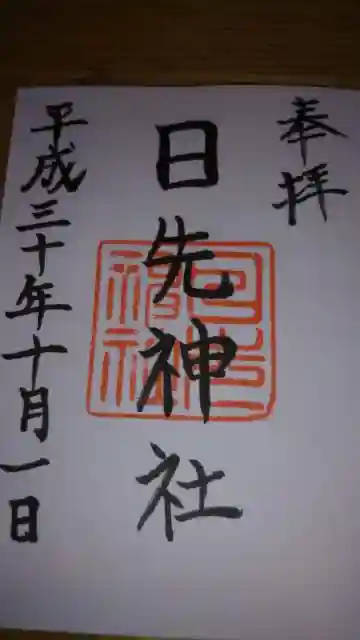 奉拝
日先神社
日先神社
平成三十年十月一日